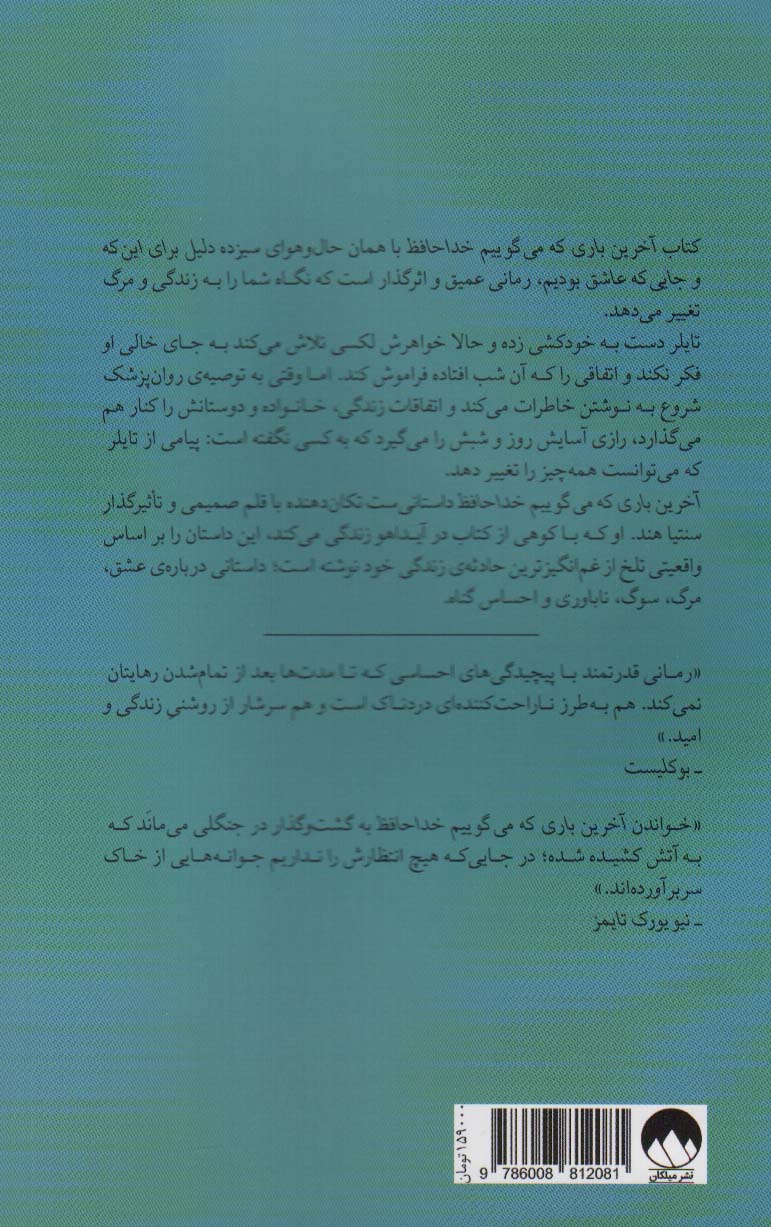 کتاب آخرین باری که می‌گوییم خداحافظ با همان حال‌وهوای سیزده دلیل برای این‌که
و جایی‌که عاشق بودیم، رمانی عمیق و اثرگذار است که نگاه شما را به زندگی و مرگ
تغییر می‌دهد.
تایلر دست به خودکشی زده و حالا خواهرش لکسی تلاش می‌کند به جای خالی او
فکر نکند و اتفاقی را که آن شب افتاده فراموش کند. اما وقتی به توصیه‌ی روان‌پزشک
شروع به نوشتن خاطرات می‌کند و اتفاقات زندگی، خانواده و دوستانش را کنار هم
می‌گذارد، رازی آسایش روز و شبش را می‌گیرد که به کسی نگفته است: پیامی از تایلر
که می‌توانست همه‌چیز را تغییر دهد.
آخرین باری که می‌گوییم خداحافظ داستانی‌ست تکان‌دهنده با قلم صمیمی و تأثیرگذار
سنتیا هند. او که با کوهی از کتاب در آیداهو زندگی می‌کند، این داستان را بر اساس
واقعیتی تلخ از غم‌انگیزترین حادثه‌ی زندگی خود نوشته است؛ داستانی درباره‌ی عشق،
مرگ، سوگ، ناباوری و احساس گناه.
«رمانی قدرتمند با پیچیدگی‌های احساسی که تا مدت‌ها بعد از تمام‌شدن رهایتان
نمی‌کند. هم به‌طرز ناراحت‌کننده‌ای دردناک است و هم سرشار از روشنیِ زندگی و
امید.»
ـ بوکلیست
«خواندن آخرین باری که می‌گوییم خداحافظ به گشت‌وگذار در جنگلی می‌مانَد که
به آتش کشیده شده؛ در جایی‌که هیچ انتظارش را نداریم جوانه‌هایی از خاک
سربرآورده‌اند.»
ـ نیویورک تایمز
۱۵۹۰۰۰ تومان
9 786008 812081
نشر میلکان